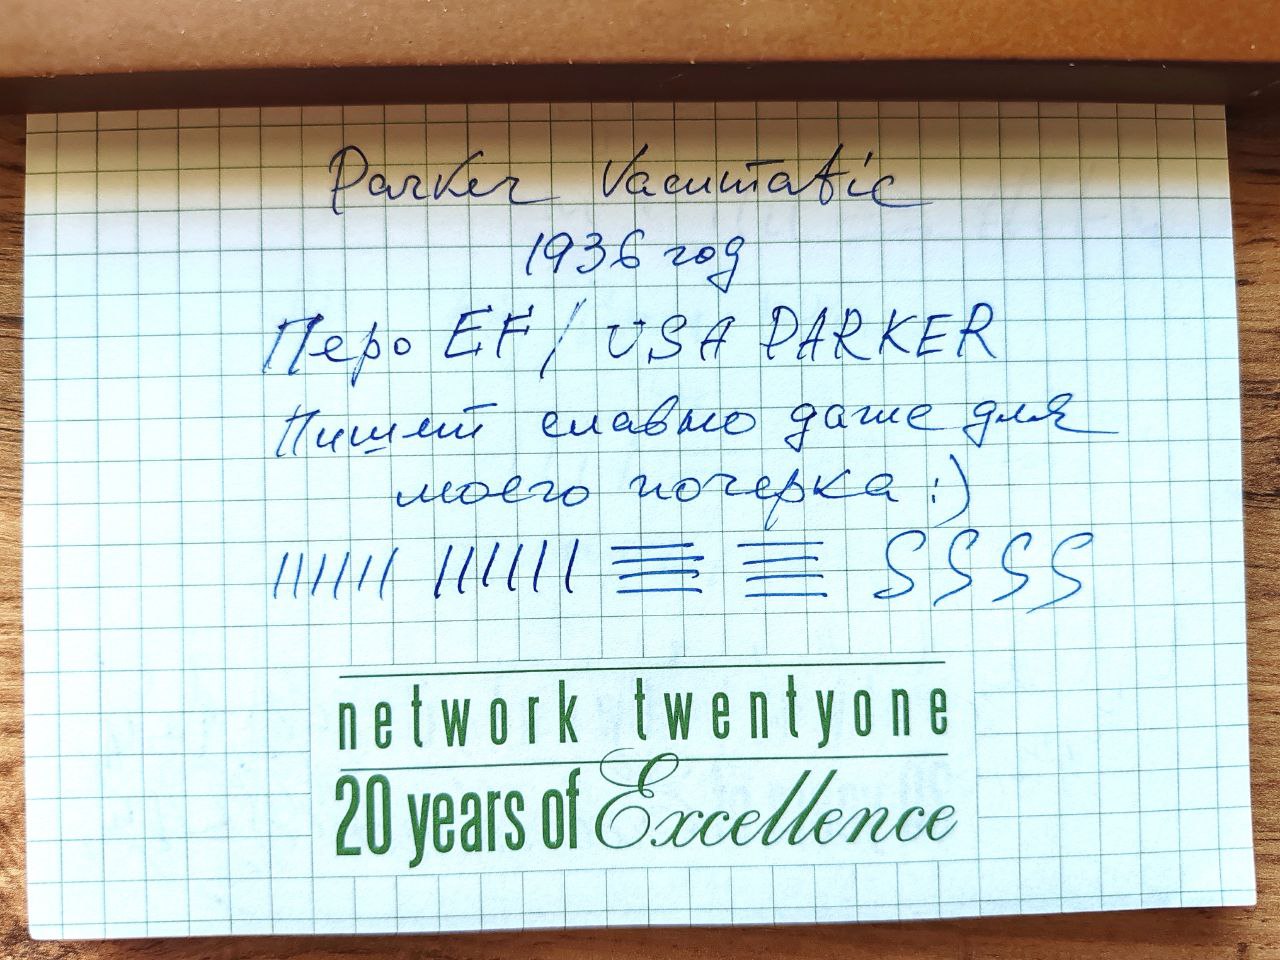 Parker Vacumatic
1936 год
Перо EF / USA PARKER
Пишет славно даже для
моего почерка :)
network twentyone
20 years of Excellence